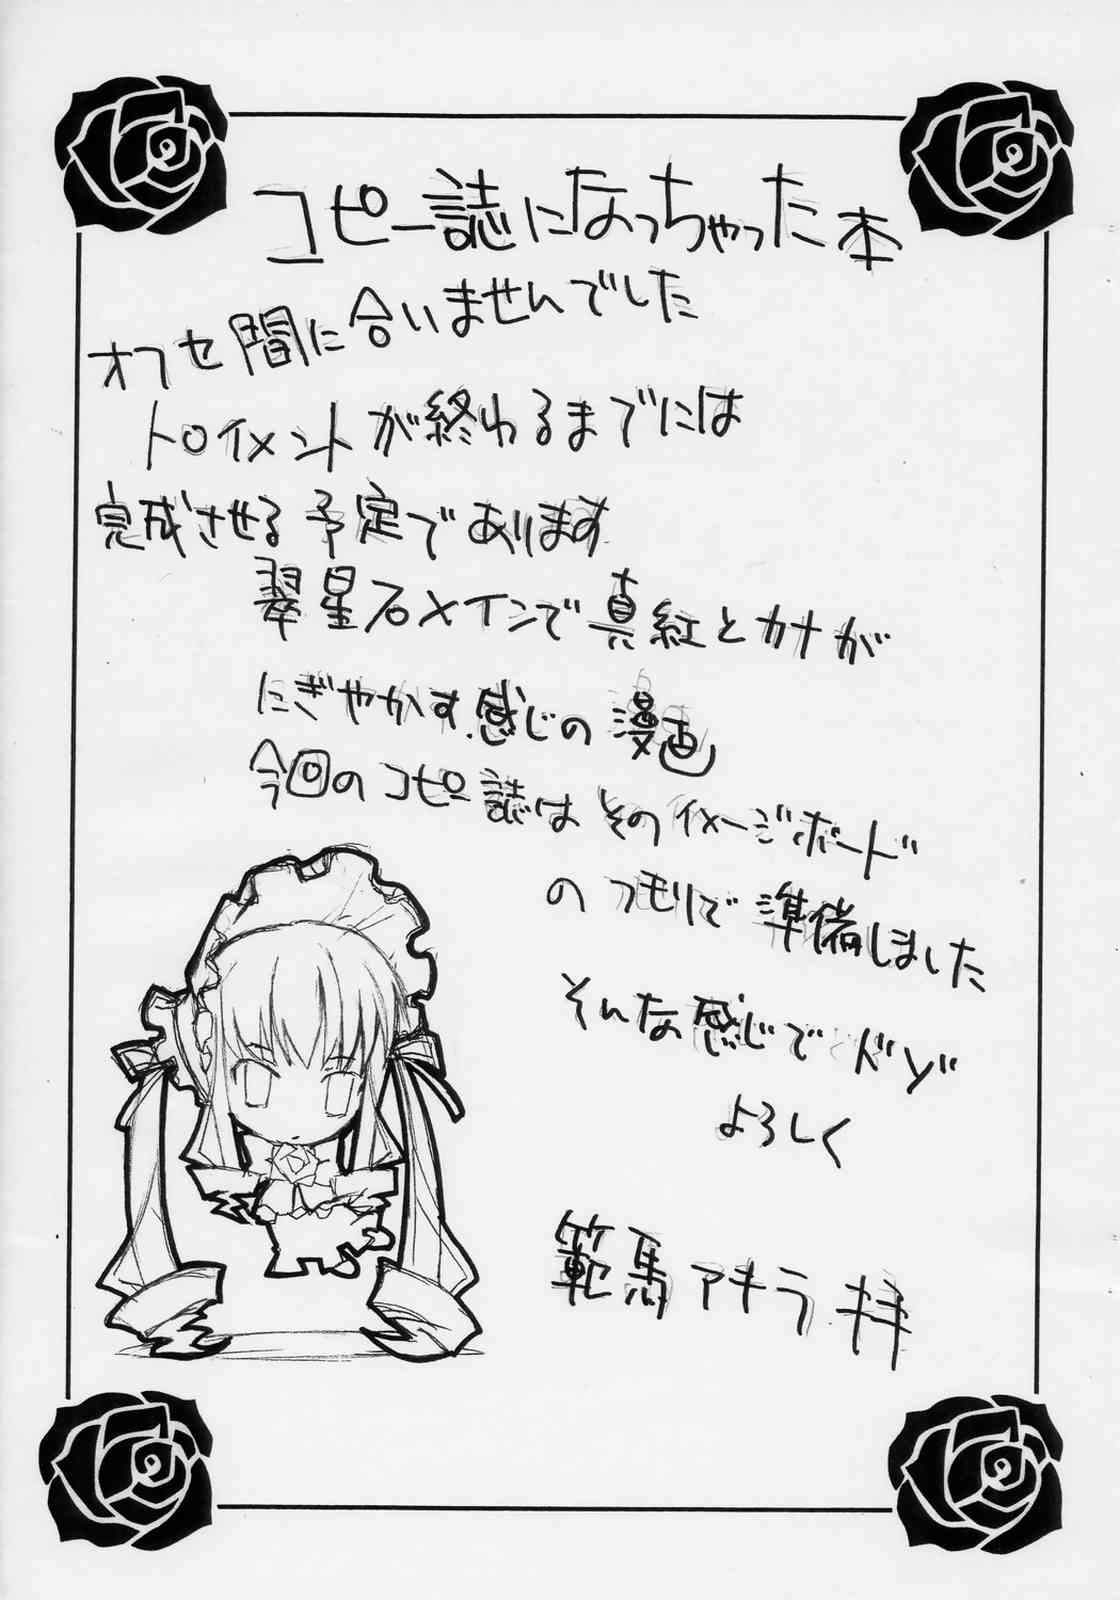 コピー誌になっちゃった本
オフセ間に合いませんでした
トロイメントが終わるまでには
完成させる予定であります
翠星石メインで真紅とカナが
にぎやかす感じの漫画
今回のコピー誌はそのイメージボード
のつもりで準備しました
そんな感じで
よろしく
範馬アキラ 拝